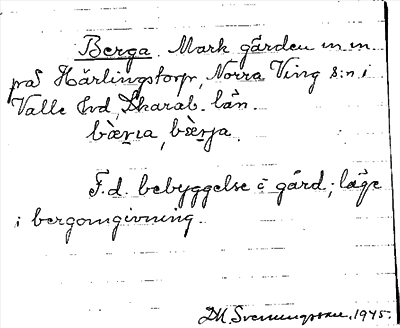 Berga. Mark gården m m
på Härlingstorp, Norra Ving s:n i
Valle hd, Skarab. län.
bæ̀rıa, bæ̀rja.
F.d. bebyggelse o gård; läge
i bergomgivning.
D.A. Svenningsson. 1945.